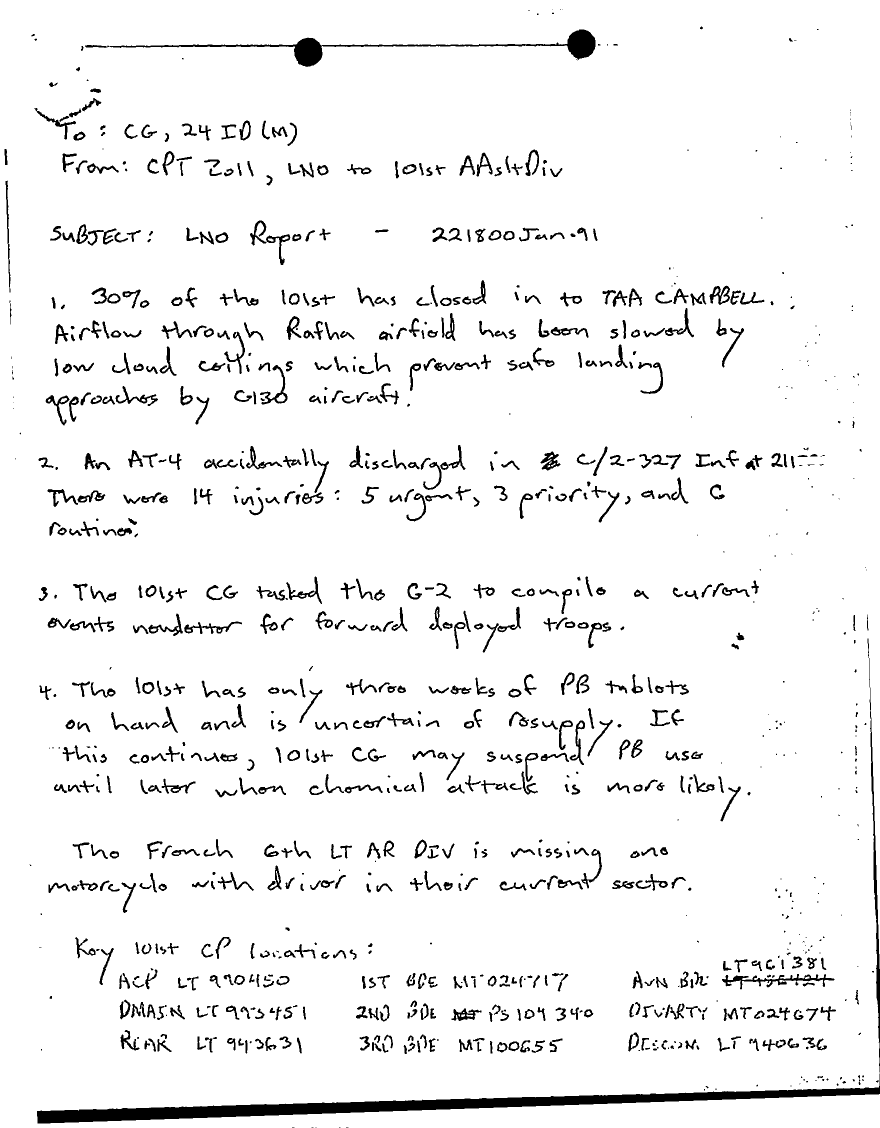 To: CG, 24 ID (M)
From: CPT Zoll, LNO to 101st AAsltDiv
SUBJECT: LNO Report - 221800Jan91
1. 30% of the 101st has closed in to TAA CAMPBELL.
Airflow through Rafha airfield has been slowed by
low cloud ceilings which prevent safe landing
approaches by C130 aircraft.
2. An AT-4 accidentally discharged in C/2-327 Inf at
There were 14 injuries: 5 urgent, 3 priority, and 6
routine.
3. The 101st CG tasked the G-2 to compile a current
events newsletter for forward deployed troops.
4. The 101st has only three weeks of PB tablets
on hand and is uncertain of resupply. If
this continues, 101st CG may suspend PB use
until later when chemical attack is more likely.
The French 6th LT AR DIV is missing one
motorcycle with driver in their current sector.
Key 101st CP locations:
ACP LT 990450 1ST BDE MT024717 AVN BDE LT961381
DMAIN LT 993451 2ND BDE PS 104 340 DIVARTY MT024674
REAR LT 943631 3RD BDE MT100655 DISCOM LT 940636